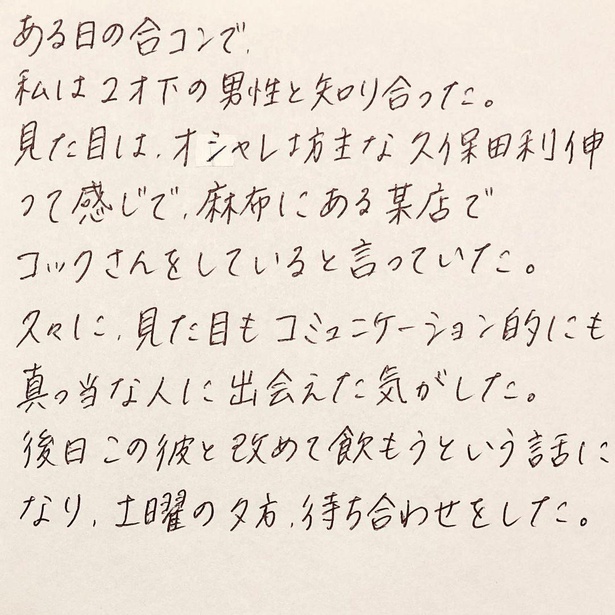 ある日の合コンで、
私は2才下の男性と知り合った。
見た目は、オシャレ坊主な久保田利伸
って感じで、麻布にある某店で
コックさんをしていると言っていた。
久々に、見た目もコミュニケーション的にも
真っ当な人に出会えた気がした。
後日この彼と改めて飲もうという話に
なり、土曜の夕方、待ち合わせをした。